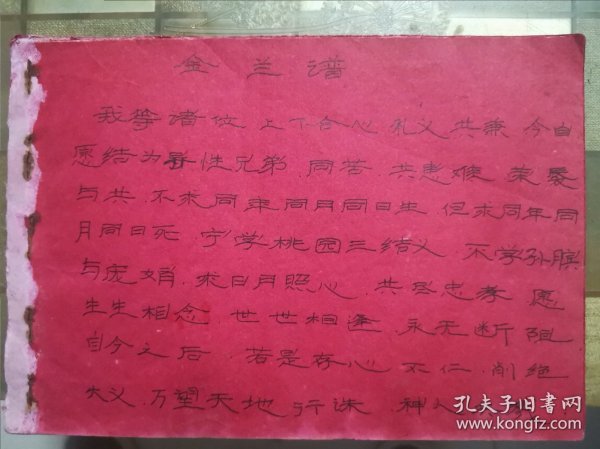 金兰谱
我等诸位 上下合心 礼义共兼 今自
愿结为异性兄弟 同苦 共患难 荣辱
与共 不求同年同月同日生 但求同年同
月同日死 宁学桃园三结义 不学孙膑
与庞娟 求日月照心 共尽忠孝 愿
生生相念 世世相逢 永无断阻
自今之后 若是存心 不仁 削绝
大义 万望天地行诛 神人
孔夫子旧书网
www.kongfz.com